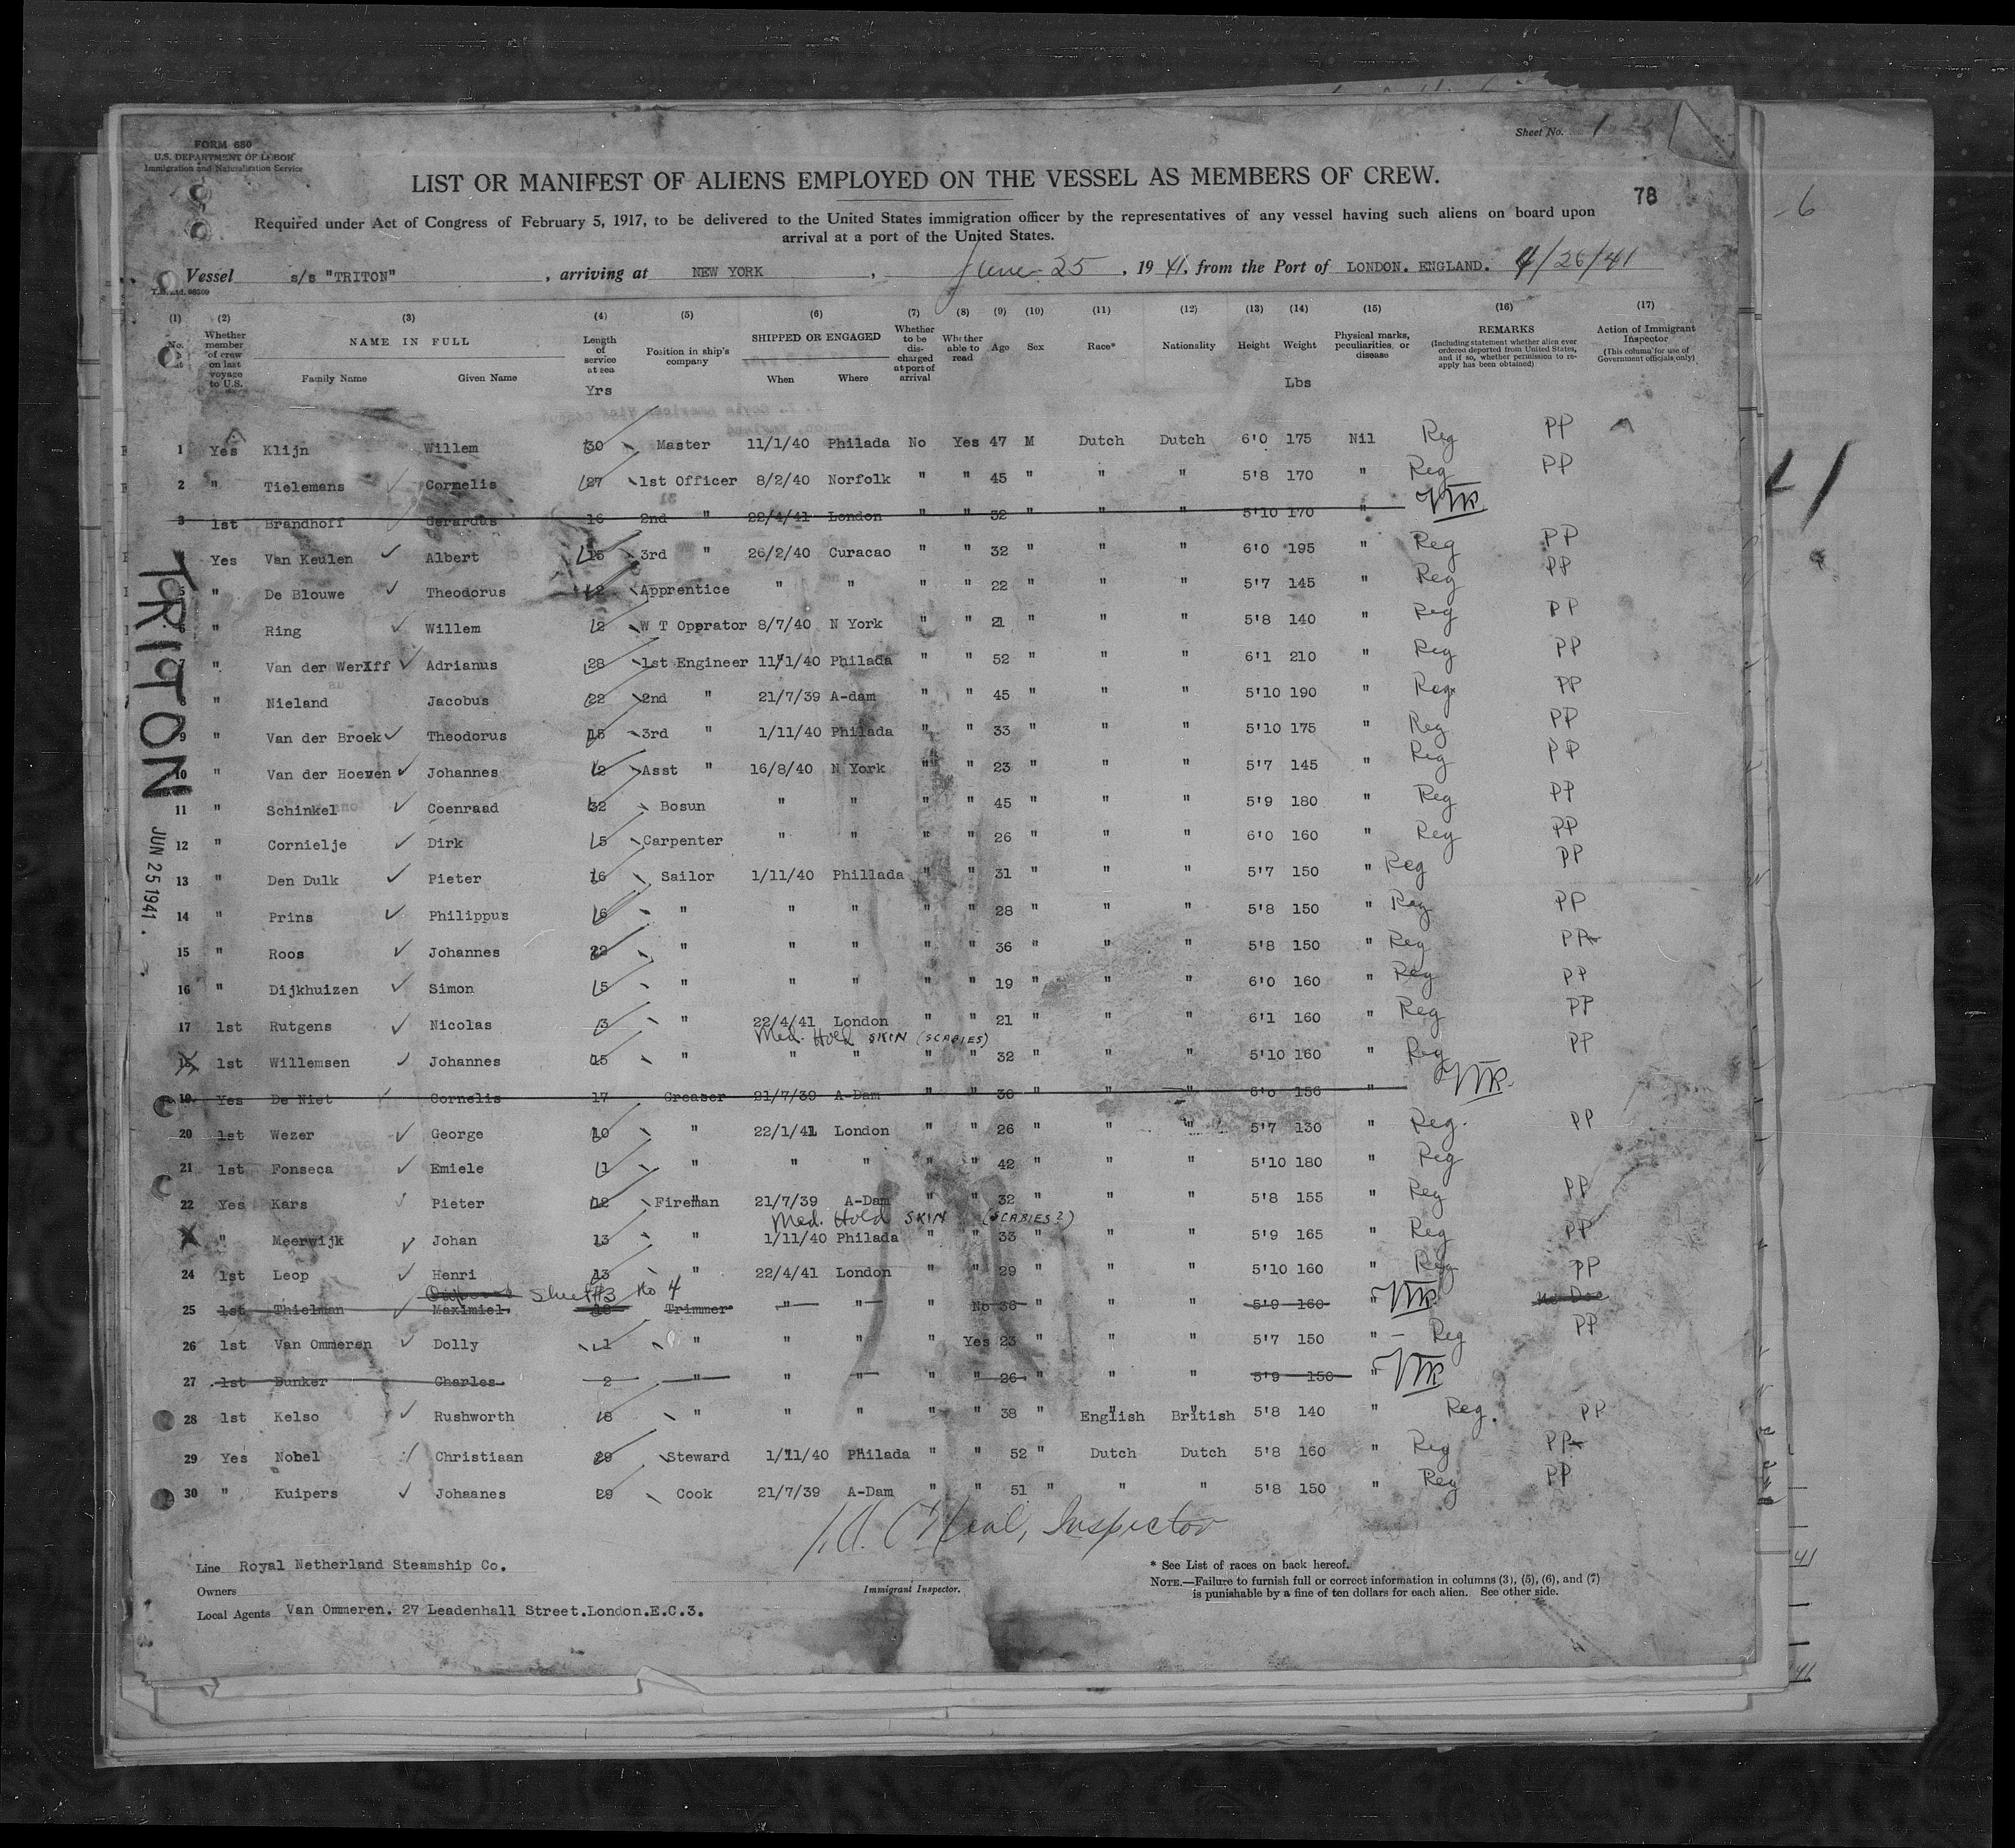 Sheet No. 1
FORM 680
U.S. DEPARTMENT OF LABOR
Immigration and Naturalization Service
LIST OR MANIFEST OF ALIENS EMPLOYED ON THE VESSEL AS MEMBERS OF CREW.
78
Required under Act of Congress of February 5, 1917, to be delivered to the United States immigration officer by the representatives of any vessel having such aliens on board upon
arrival at a port of the United States.
Vessel s/s "TRITON", arriving at NEW YORK, June 25, 1941, from the Port of LONDON. ENGLAND. 4/26/41
(1) (2) (3) (4) (5) (6) (7) (8) (9) (10) (11) (12) (13) (14) (15) (16) (17)
Whether member of crew on last voyage to U.S.
NAME IN FULL
Family Name Given Name
Length of service at sea
Yrs
Position in ship's company
SHIPPED OR ENGAGED
When Where
Whether to be discharged at port of arrival
Whether able to read
Age Sex Race* Nationality Height Weight
Lbs
Physical marks, peculiarities, or disease
REMARKS
(Including statement whether alien ever ordered deported from United States, and if so, whether permission to reapply has been obtained)
Action of Immigrant Inspector
(This column for use of Government officials only)
1 Yes Klijn Willem 30 Master 11/1/40 Philada No Yes 47 M Dutch Dutch 6'0 175 Nil Reg PP
2 " Tielemans Cornelis 27 1st Officer 8/2/40 Norfolk " " 45 " " " 5'8 170 " Reg PP
3 1st Brandhoff Gerardus 16 2nd " 22/4/41 London " " 32 " " " 5'10 170 "
Yes Van Keulen Albert 15 3rd " 26/2/40 Curacao " " 32 " " " 6'0 195 " Reg PP
5 " De Blouwe Theodorus 2 Apprentice " " " " 22 " " " 5'7 145 " Reg PP
6 " Ring Willem 2 W T Operator 8/7/40 N York " " 21 " " " 5'8 140 " Reg PP
7 " Van der Werff Adrianus 28 1st Engineer 11/1/40 Philada " " 52 " " " 6'1 210 " Reg PP
8 " Nieland Jacobus 22 2nd " 21/7/39 A-dam " " 45 " " " 5'10 190 " Reg PP
9 " Van der Broek Theodorus 15 3rd " 1/11/40 Philada " " 33 " " " 5'10 175 " Reg PP
10 " Van der Hoeven Johannes 2 Asst " 16/8/40 N York " " 23 " " " 5'7 145 " Reg PP
11 " Schinkel Coenraad 32 Bosun " " " " 45 " " " 5'9 180 " Reg PP
12 " Cornielje Dirk 5 Carpenter " " " " 26 " " " 6'0 160 " Reg PP
13 " Den Dulk Pieter 16 Sailor 1/11/40 Phillada " " 31 " " " 5'7 150 " Reg PP
14 " Prins Philippus 6 " " " " " 28 " " " 5'8 150 " Reg PP
15 " Roos Johannes 22 " " " " " 36 " " " 5'8 150 " Reg PP
16 " Dijkhuizen Simon 5 " " " " " 19 " " " 6'0 160 " Reg PP
17 1st Rutgens Nicolas 3 " 22/4/41 London " " 21 " " " 6'1 160 " Reg PP
Med. Hold SKIN (SCABIES)
1st Willemsen Johannes 15 " " " " " 32 " " " 5'10 160 " Reg PP
19 Yes De Niet Cornelis 17 Greaser 21/7/39 A-Dam " " 30 " " " 6'0 156 "
20 1st Wezer George 10 " 22/1/41 London " " 26 " " " 5'7 130 " Reg. PP
21 1st Fonseca Emiele 1 " " " " " 42 " " " 5'10 180 " Reg
22 Yes Kars Pieter 12 Fireman 21/7/39 A-Dam " " 32 " " " 5'8 155 " Reg PP
Med. Hold SKIN (SCABIES?)
" Meerwijk Johan 13 " 1/11/40 Philada " " 33 " " " 5'9 165 " Reg PP
24 1st Leop Henri 13 " 22/4/41 London " " 29 " " " 5'10 160 " Reg PP
Sheet #3 No 4
25 1st Thielman Maximiel. Trimmer " " " No 36 " " " 5'9 160 " No Doc
26 1st Van Ommeren Dolly 1 " " " " Yes 23 " " " 5'7 150 " - Reg PP
27 1st Bunker Charles 2 " " " " " 26 " " " 5'9 150 "
28 1st Kelso Rushworth 8 " " " " " 38 " English British 5'8 140 " Reg. PP
29 Yes Nobel Christiaan 29 Steward 1/11/40 Philada " " 52 " Dutch Dutch 5'8 160 " Reg PP
30 " Kuipers Johaanes 29 Cook 21/7/39 A-Dam " " 51 " " " 5'8 150 " Reg PP
TRITON
JUN 25 1941.
Inspector
Line Royal Netherland Steamship Co.
Owners
Immigrant Inspector.
Local Agents Van Ommeren. 27 Leadenhall Street.London.E.C.3.
* See List of races on back hereof.
NOTE.—Failure to furnish full or correct information in columns (3), (5), (6), and (7)
is punishable by a fine of ten dollars for each alien. See other side.